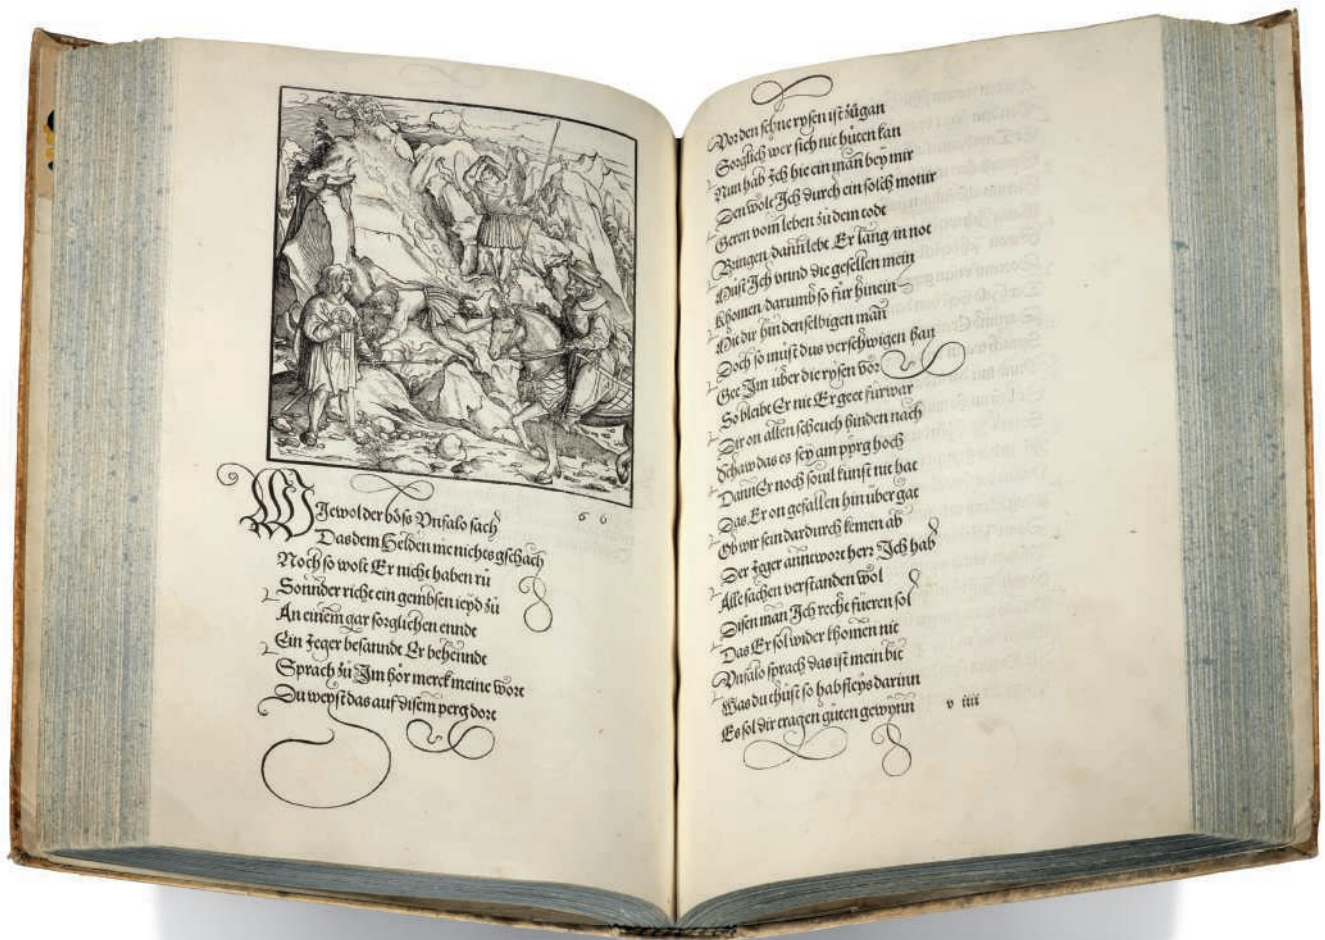 66
Wiewol der böss Unfalo sach
Das dem Helden nie nichts gschach
Noch so wolt Er nicht haben rů
Sonnder richt ein gembsen ieyd zů
An einem gar sorglichen ennde
Ein Jeger besanndt Er behenndt
Sprach zů Im hör merck meine wort
Du weyst das auf disem perg dort
Vor den schne rysen ist zůgan
Sorglich wer sich nit hůten kan
Nun hab Ich hie ein man bey mir
Den wolt Ich durch ein solch monir
Geren vom leben zů dem todt
Bringen dann lebt Er lang in not
Můst Ich unnd die gesellen mein
Khomen darumb so für hinein
Mit dir hin denselbigen man
Doch so můst dus verschwigen han
Gee Im über die rysen vor
So bleibt Er nit Er geet fürwar
Dir on allen scheuch hinden nach
Schaw das es sey am pyrg hoch
Dann Er noch souil kunst nit hat
Das Er on gefallen hin über gat
Ob wir sein dardurch kemen ab
Der Jeger anntwort herr Ich hab
Alle sachen verstanden wol
Disen man Ich recht füeren sol
Das Er sol wider khomen nit
Unfalo sprach das ist mein bit
Was du thůst so hab fleys darinn
Es sol dir tragen gůten gewynn
v iiii